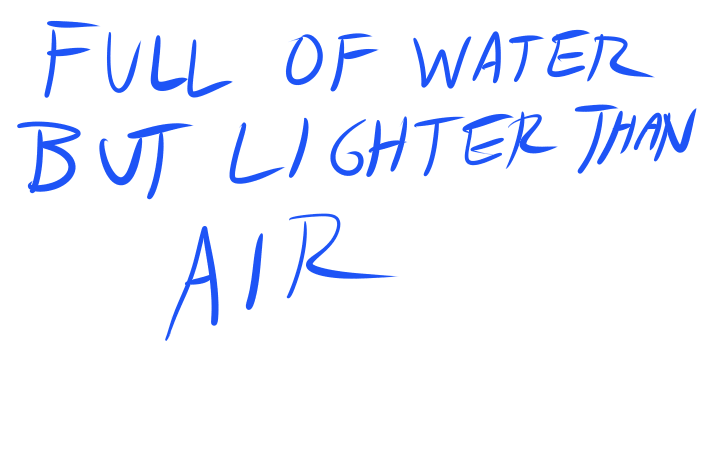 FULL OF WATER
BUT LIGHTER THAN
AIR